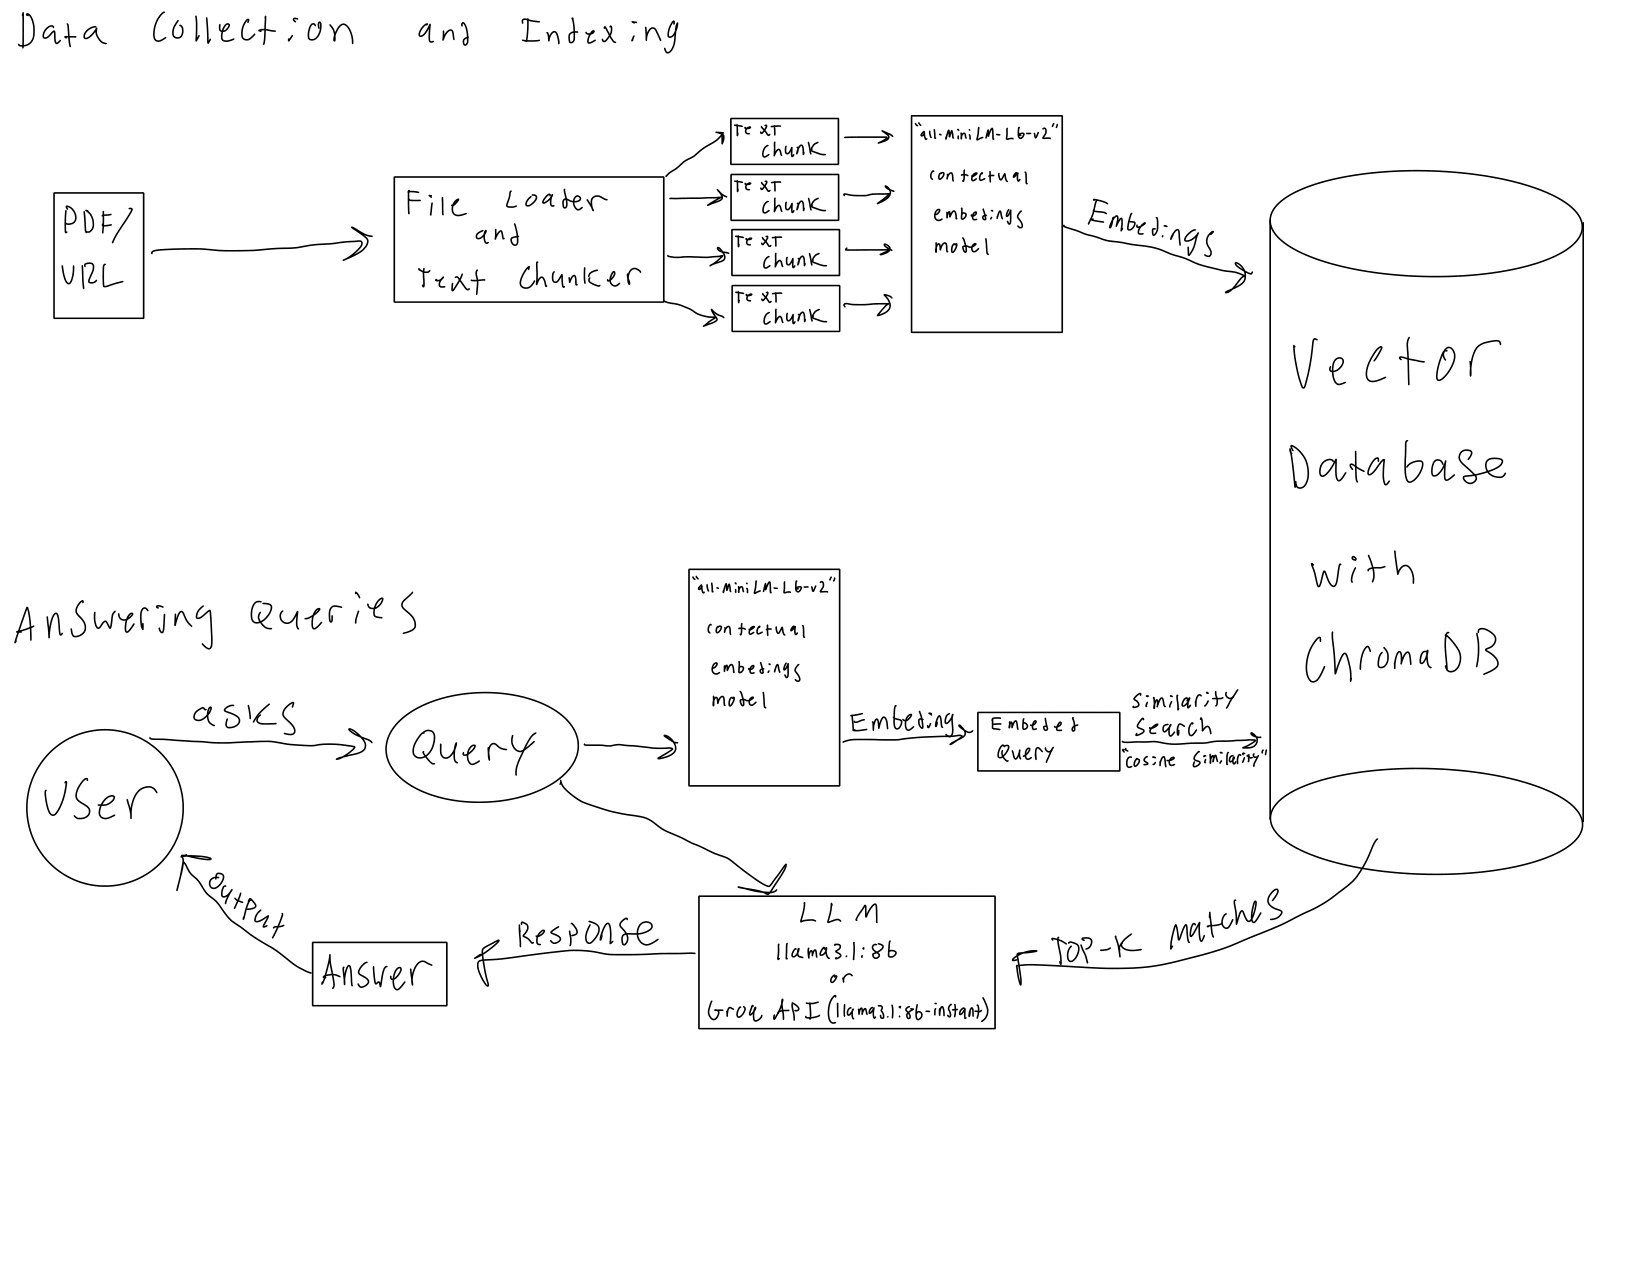 Data Collection and Indexing
PDF/
URL
File Loader
and
Text Chunker
Text
Chunk
Text
Chunk
Text
Chunk
Text
Chunk
"all-MiniLM-L6-v2"
contectual
embedings
model
Embedings
Vector
Database
with
ChromaDB
Answering Queries
User
asks
Query
"all-MiniLM-L6-v2"
contectual
embedings
model
Embeding
Embeded
Query
Similarity
Search
"cosine similarity"
TOP-K matches
LLM
llama3.1:8b
or
Groq API (llama3.1:8b-instant)
Response
Answer
Output